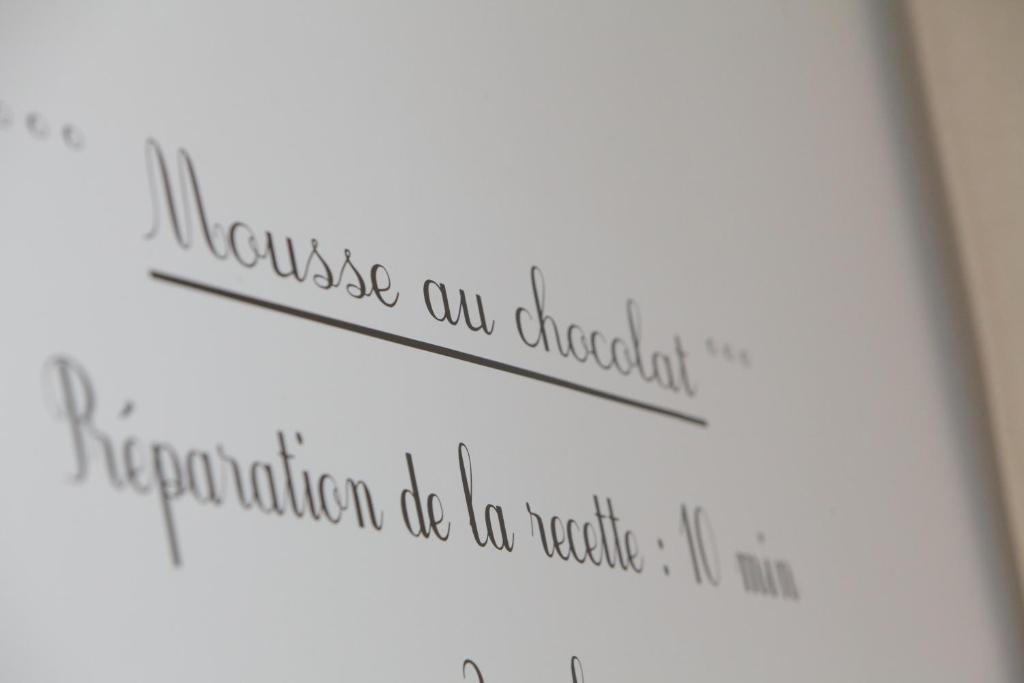 Mousse au chocolat
Préparation de la recette : 10 min